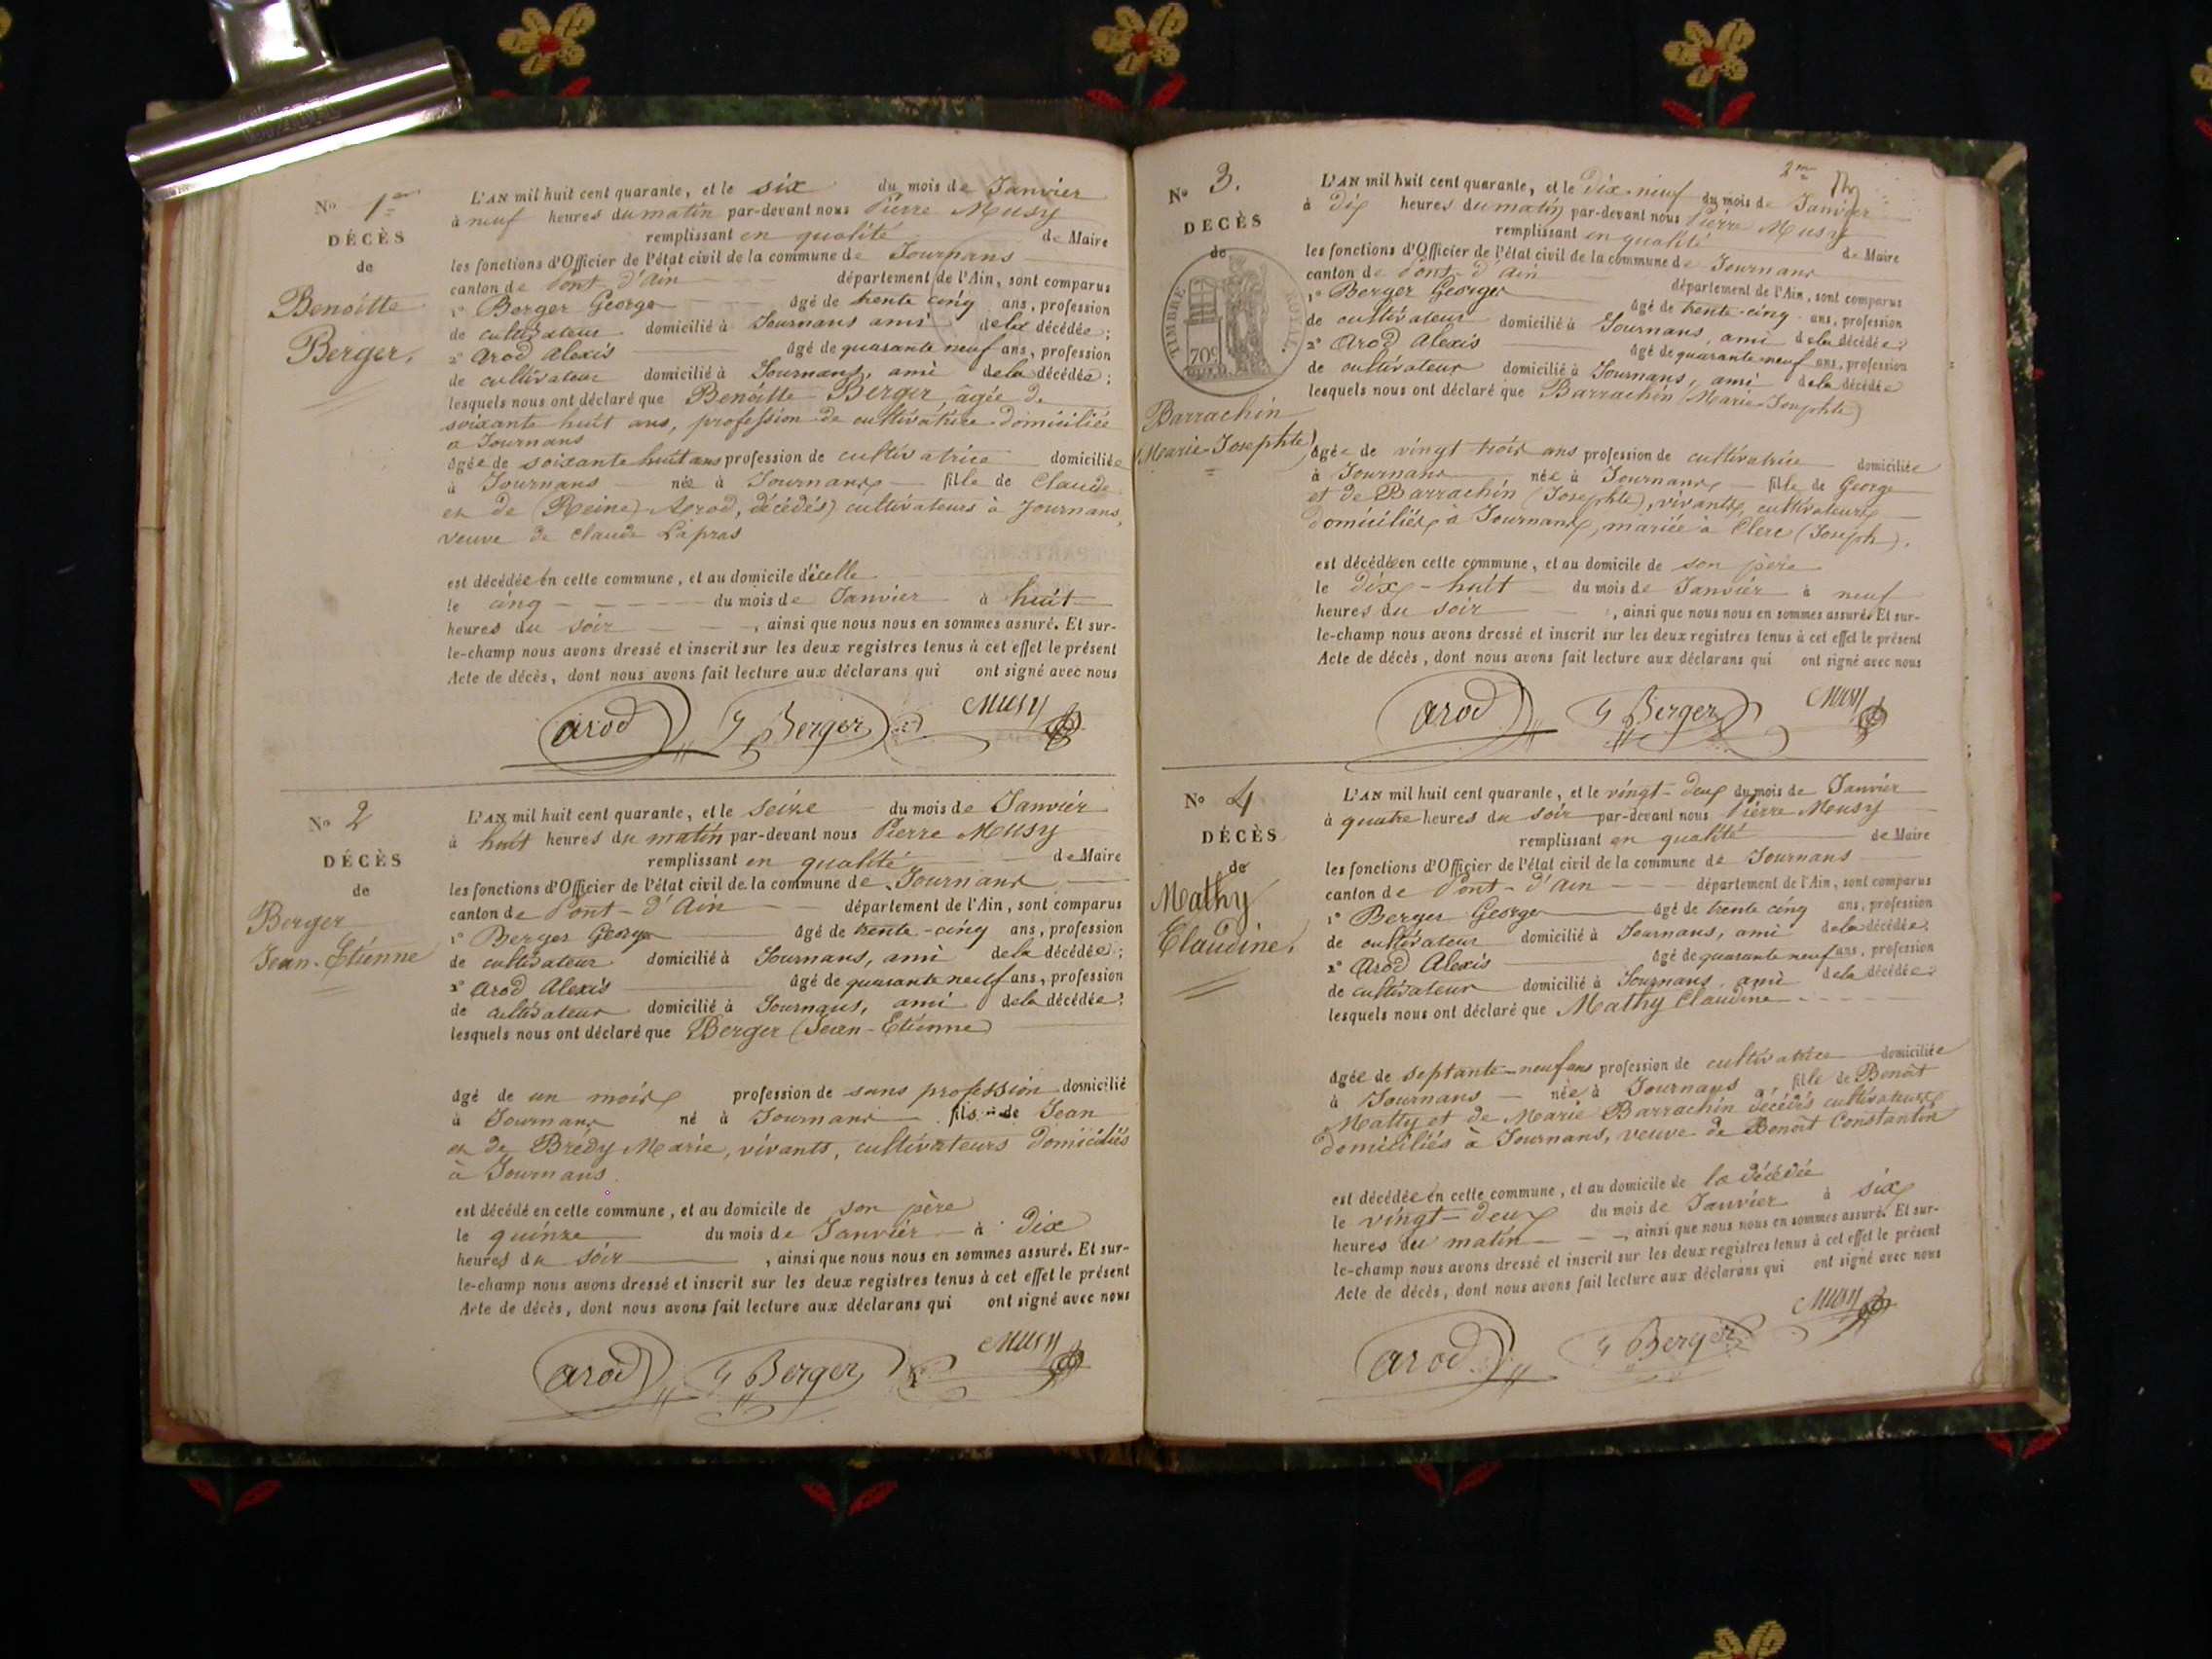 No 1er
DÉCÈS
de
Benoitte
Berger.
L'AN mil huit cent quarante, et le six du mois de Janvier
à neuf heures du matin par-devant nous Pierre Musy
remplissant en qualité de Maire
les fonctions d'Officier de l'état civil de la commune de Journans
canton de Pont d'Ain département de l'Ain, sont comparus
1° Berger George âgé de trente cinq ans, profession
de cultivateur domicilié à Journans ami de la décédée;
2° Arod Alexis âgé de quarante neuf ans, profession
de cultivateur domicilié à Journans, ami de la décédée;
lesquels nous ont déclaré que Benoitte Berger, âgée de
soixante huit ans, profession de cultivatrice domiciliée
a Journans
âgée de soixante huit ans profession de cultivatrice domiciliée
à Journans née à Journans fille de Claude
et de (Reine) Arod, décédés) cultivateurs à Journans,
veuve de Claude Lapras
est décédée en cette commune, et au domicile d'icelle
le cinq du mois de Janvier à huit
heures du soir, ainsi que nous nous en sommes assuré. Et sur-
le-champ nous avons dressé et inscrit sur les deux registres tenus à cet effet le présent
Acte de décès, dont nous avons fait lecture aux déclarans qui ont signé avec nous
arod G Berger Musy
No 2
DÉCÈS
de
Berger
Jean-Etienne
L'AN mil huit cent quarante, et le seize du mois de Janvier
à huit heures du matin par-devant nous Pierre Musy
remplissant en qualité de Maire
les fonctions d'Officier de l'état civil de la commune de Journans
canton de Pont-d'Ain département de l'Ain, sont comparus
1° Berger George âgé de trente-cinq ans, profession
de cultivateur domicilié à Journans, ami de la décédée;
2° Arod Alexis âgé de quarante neuf ans, profession
de cultivateur domicilié à Journans, ami de la décédée;
lesquels nous ont déclaré que Berger (Jean-Etienne)
âgé de un mois profession de sans profession domicilié
à Journans né à Journans fils de Jean
et de Brédy Marie, vivants, cultivateurs domiciliés
à Journans.
est décédé en cette commune, et au domicile de son père
le quinze du mois de Janvier à dix
heures du soir, ainsi que nous nous en sommes assuré. Et sur-
le-champ nous avons dressé et inscrit sur les deux registres tenus à cet effet le présent
Acte de décès, dont nous avons fait lecture aux déclarans qui ont signé avec nous
arod G Berger Musy
2me
No 3.
DECÈS
de
TIMBRE ROYAL.
70c
Barrachin
(Marie-Josephte)
L'AN mil huit cent quarante, et le Dix-neuf du mois de Janvier
à dix heures du matin par-devant nous Pierre Musy
remplissant en qualité de Maire
les fonctions d'Officier de l'état civil de la commune de Journans
canton de Pont-d'Ain département de l'Ain, sont comparus
1° Berger George âgé de trente-cinq ans, profession
de cultivateur domicilié à Journans, ami de la décédée;
2° Arod Alexis âgé de quarante neuf ans, profession
de cultivateur domicilié à Journans, ami de la décédée
lesquels nous ont déclaré que Barrachin (Marie-Josephte)
âgée de vingt trois ans profession de cultivatrice domiciliée
à Journans née à Journans fille de George
et de Barrachin (Josephte), vivants, cultivateurs
domiciliés à Journans, mariée à Clerc (Joseph).
est décédée en cette commune, et au domicile de son père
le dix-huit du mois de Janvier à neuf
heures du soir, ainsi que nous nous en sommes assuré. Et sur-
le-champ nous avons dressé et inscrit sur les deux registres tenus à cet effet le présent
Acte de décès, dont nous avons fait lecture aux déclarans qui ont signé avec nous
arod G Berger Musy
No 4
DÉCÈS
de
Mathy
Claudine.
L'AN mil huit cent quarante, et le vingt-deux du mois de Janvier
à quatre heures du soir par-devant nous Pierre Musy
remplissant en qualité de Maire
les fonctions d'Officier de l'état civil de la commune de Journans
canton de Pont-d'Ain département de l'Ain, sont comparus
1° Berger George âgé de trente cinq ans, profession
de cultivateur domicilié à Journans, ami de la décédée;
2° Arod Alexis âgé de quarante neuf ans, profession
de cultivateur domicilié à Journans, ami de la décédée;
lesquels nous ont déclaré que Mathy Claudine
âgée de septante-neuf ans profession de cultivatrice domiciliée
à Journans née à Journans fille de Benoit
Matty et de Marie Barrachin décédés cultivateurs
domiciliés à Journans, veuve de Benoit Constantin
est décédée en cette commune, et au domicile de la décédée
le vingt-deux du mois de Janvier à six
heures du matin, ainsi que nous nous en sommes assuré. Et sur-
le-champ nous avons dressé et inscrit sur les deux registres tenus à cet effet le présent
Acte de décès, dont nous avons fait lecture aux déclarans qui ont signé avec nous
arod G Berger Musy